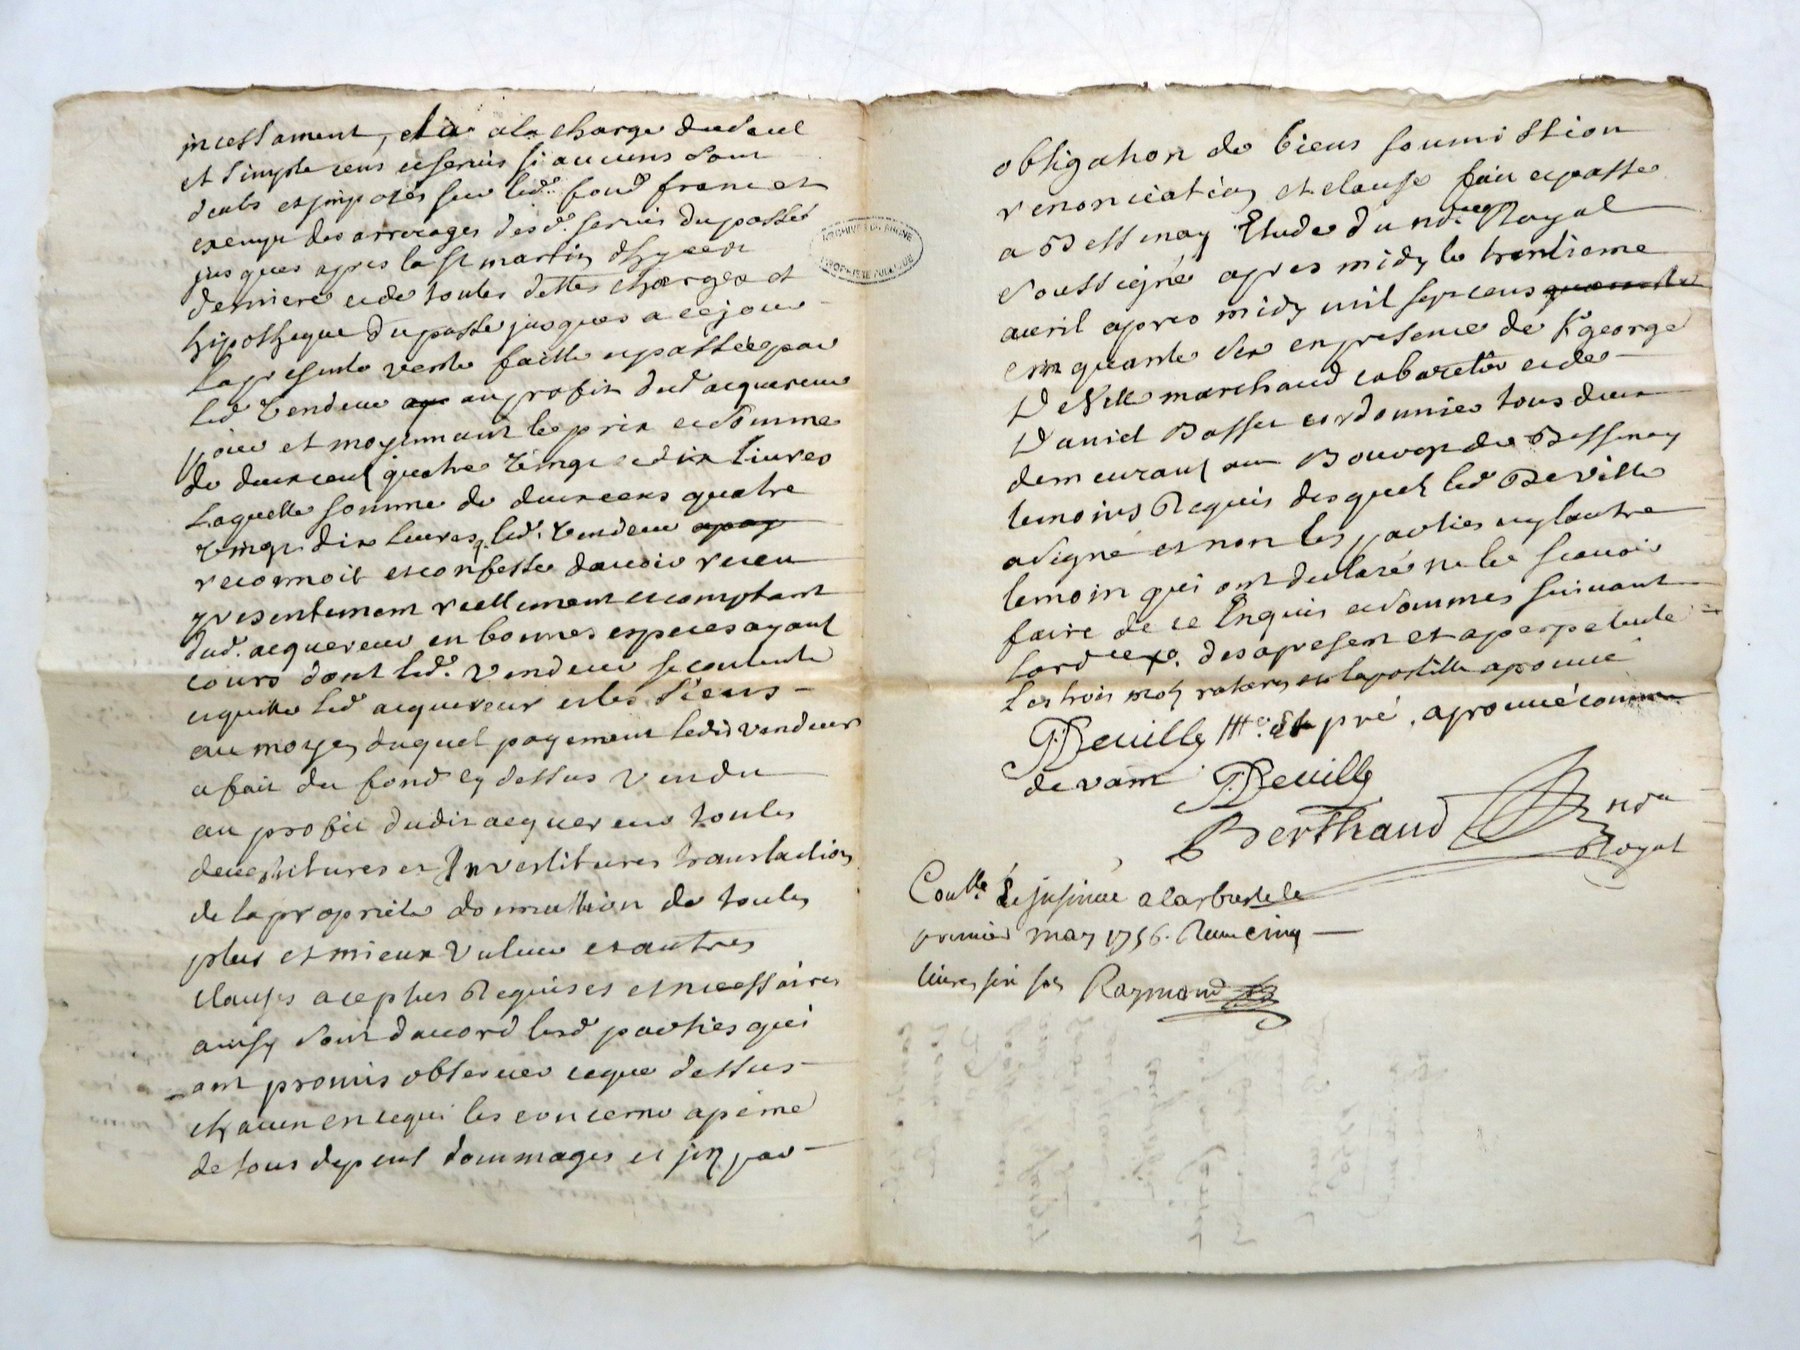 incessament, et ce a la charge du seul
et simple cens et servis si aucuns sont
deubs et imposés sur led. fond franc et
exempt des arrerages desd. servis du passé
jusques apres la st martin d'hyver
derniere et de toutes dettes charges et
hipotheque du passé jusques a ce jour
la presente vente faitte et passée par
led vendeur au profit dud acquereur
pour et moyennant le prix et somme
de deux cent quatre vingt et dix livres
laquelle somme de deux cens quatre
vingt dix livres led. vendeur
reconnoit et confesse d'avoir receu
presentement reellement et comptant
dud. acquereur en bonnes especes ayant
cours dont led. vendeur se contente
et quitte led acquereur et les siens
au moyen duquel payement ledit vendeur
a fait du fond cy dessus vendu
au profit dudit acquereur toutes
devestitures et Investitures translation
de la proprieté domination de toutes
plus et mieux value et autres
clauses a ce plus Requises et necessaires
ainsy sont d'accord lesd parties qui
ont promis observer ce que dessus
chacun en ce qui les concerne a peine
de tous depens dommages et par
ARCHIVES DU RHONE
PROPRIÉTÉ PUBLIQUE
obligation de biens soumission
renonciation et clause fait et passé
a Bessenay Etude du not.re Royal
soussigné apres midy le trentieme
avril apres midy mil sept cens
cinquante six en presence de Sr george
Deville marchand cabaretier et de
Daniel Basset cordonnier tous deux
demeurant au Bourg de Bessenay
temoins Requis desquels led Deville
a signé et non les parties ny l'autre
temoin qui ont declaré ne le sçavoir
faire de ce Enquis et sommes suivant
l'ord des a present et a perpetuité
Les trois mots raturés et la postille aprouvé
Deville pré, aprouvé comme
devant Deville
Berthaud nore
Royal
Coullé & insinué a larbresle le
premier may 1756. Receu cinq
livres six sols Raymond